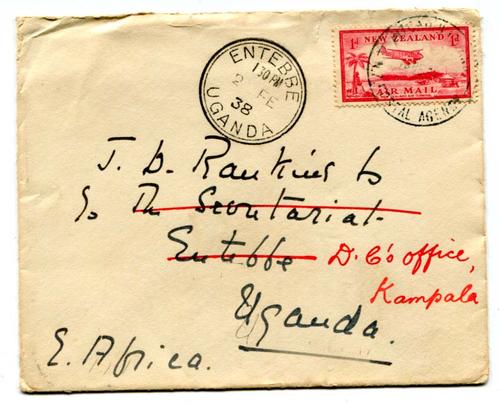 1d NEW ZEALAND 1d
AIR MAIL
POSTAL AGENCY
ENTEBBE
1 30 PM
2 FE
38
UGANDA
J. D. Rankine
The Secretariat
Entebbe D. C's office,
Kampala
Uganda.
E. Africa.